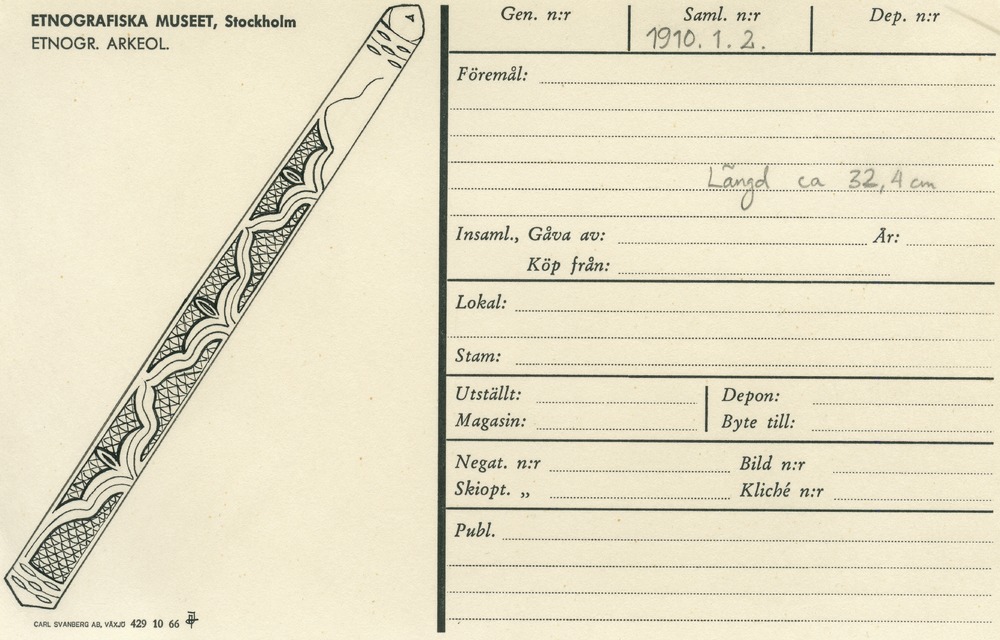 ETNOGRAFISKA MUSEET, Stockholm
ETNOGR. ARKEOL.
CARL SVANBERG AB, VÄXJÖ 429 10 66
Gen. n:r Saml. n:r Dep. n:r
1910. 1. 2.
Föremål:
Längd ca 32,4 cm
Insaml., Gåva av: År:
Köp från:
Lokal:
Stam:
Utställt: Depon:
Magasin: Byte till:
Negat. n:r Bild n:r
Skiopt. „ Kliché n:r
Publ.